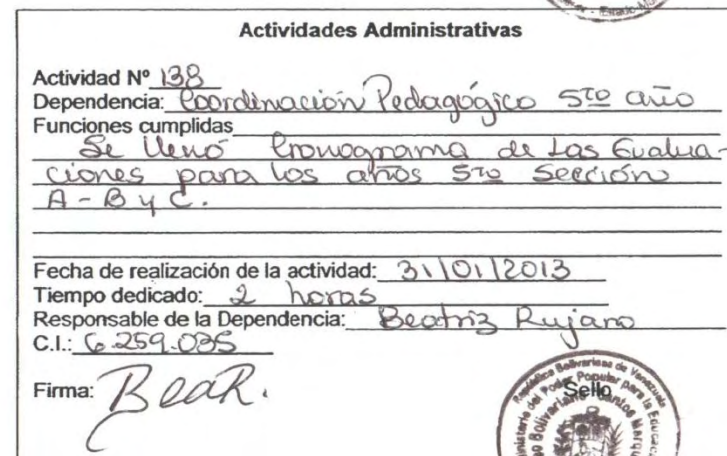 Actividades Administrativas
Actividad Nº 138
Dependencia: Coordinación Pedagógico 5to año
Funciones cumplidas
Se llenó Cronograma de Las Evalua-
ciones para los años 5to Sección
A - B y C.
Fecha de realización de la actividad: 31/01/2013
Tiempo dedicado: 2 horas
Responsable de la Dependencia: Beatriz Rujano
C.I.: 6.259.035
Firma: BeaR.
Sello
República Bolivariana de Venezuela
Ministerio del Poder Popular para la Educac